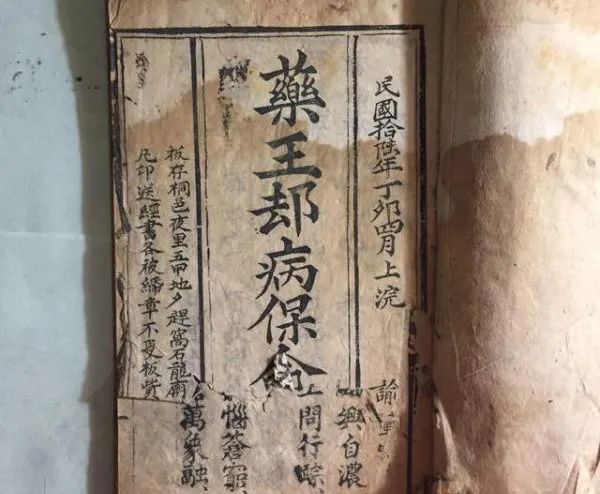 民國拾陸年丁卯四月上浣
藥王却病保命
板存桐邑夜里五甲地夕趕窩石龍廟
凡印送經書各被編章不夏板貲
諭
興自濃
上問行踪
惱蒼窮
萬象融